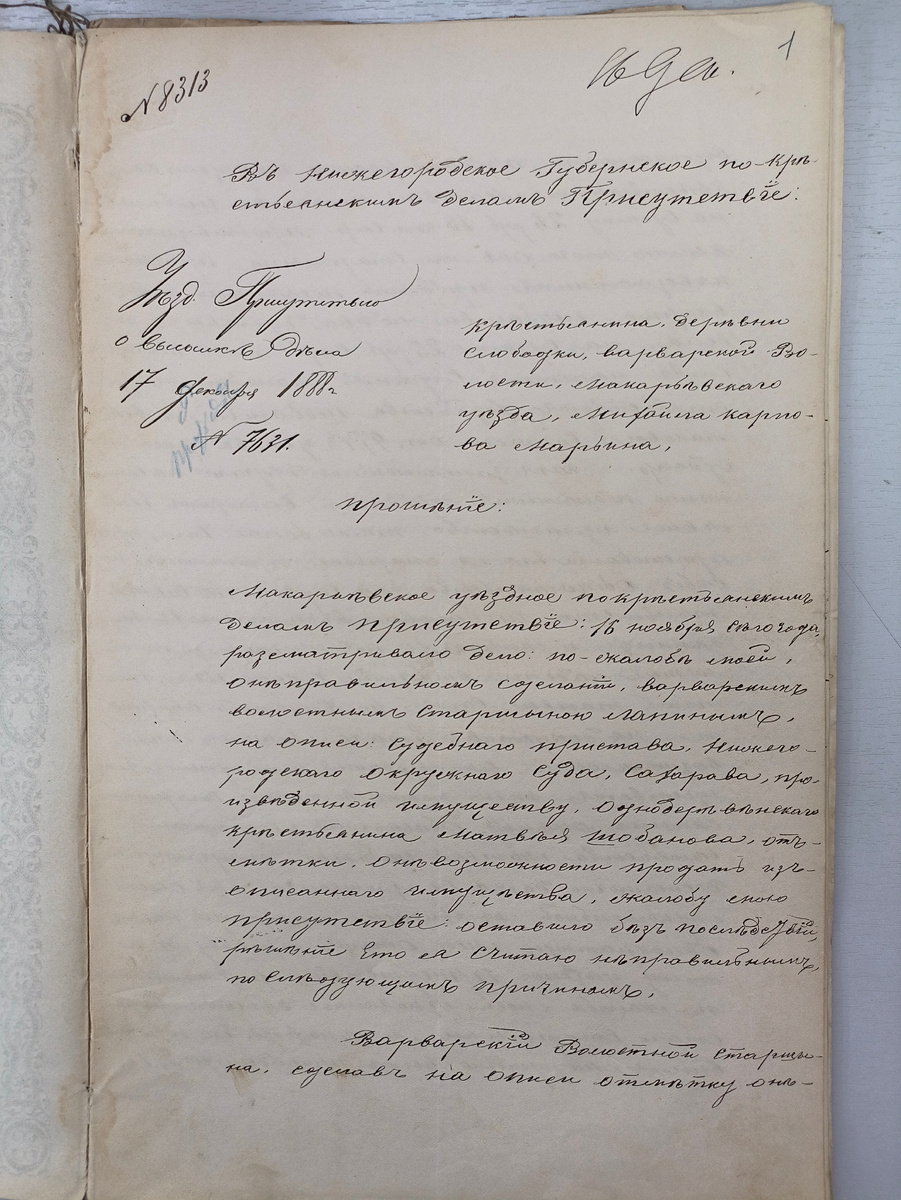 N 8313
16 Дек.
1
Въ Нижегородское Губернское по-кре-
стьянскимъ деламъ Присутствіе:
Уѣзд. Присутствію
о высылкѣ Дѣла
17 декабря 1888 г
N 7631.
крестьянина, деревни
слободки, варварской Во-
лости, Макарьевскаго
уѣзда, Михаила карпо-
ва Марьина,
прошеніе:
Макарьевское уѣздное по крестьянскимъ
деламъ присутствіе: 16 ноября сего года,
разсматривало дело: по-жалобѣ моей,
онеправильномъ сделаніи, варварскимъ
волостнымъ старшыною Лапинымъ,
на описи: судебнаго пристава, Нижего-
родскаго окружнаго Суда, Сахарава, про-
изведенной имуществу, однодеревенскаго
крестьянина Матвея Шобанова, отъ-
метки, оневозможности продать изъ-
описаннаго имущества, жалобу мою
присутствіе: оставило безъ последствій,
решеніе Его я считаю неправильнымъ,
по следующимъ причинамъ,
Варварскій Волостной старшы-
на, сделавъ на описи отметку оне-